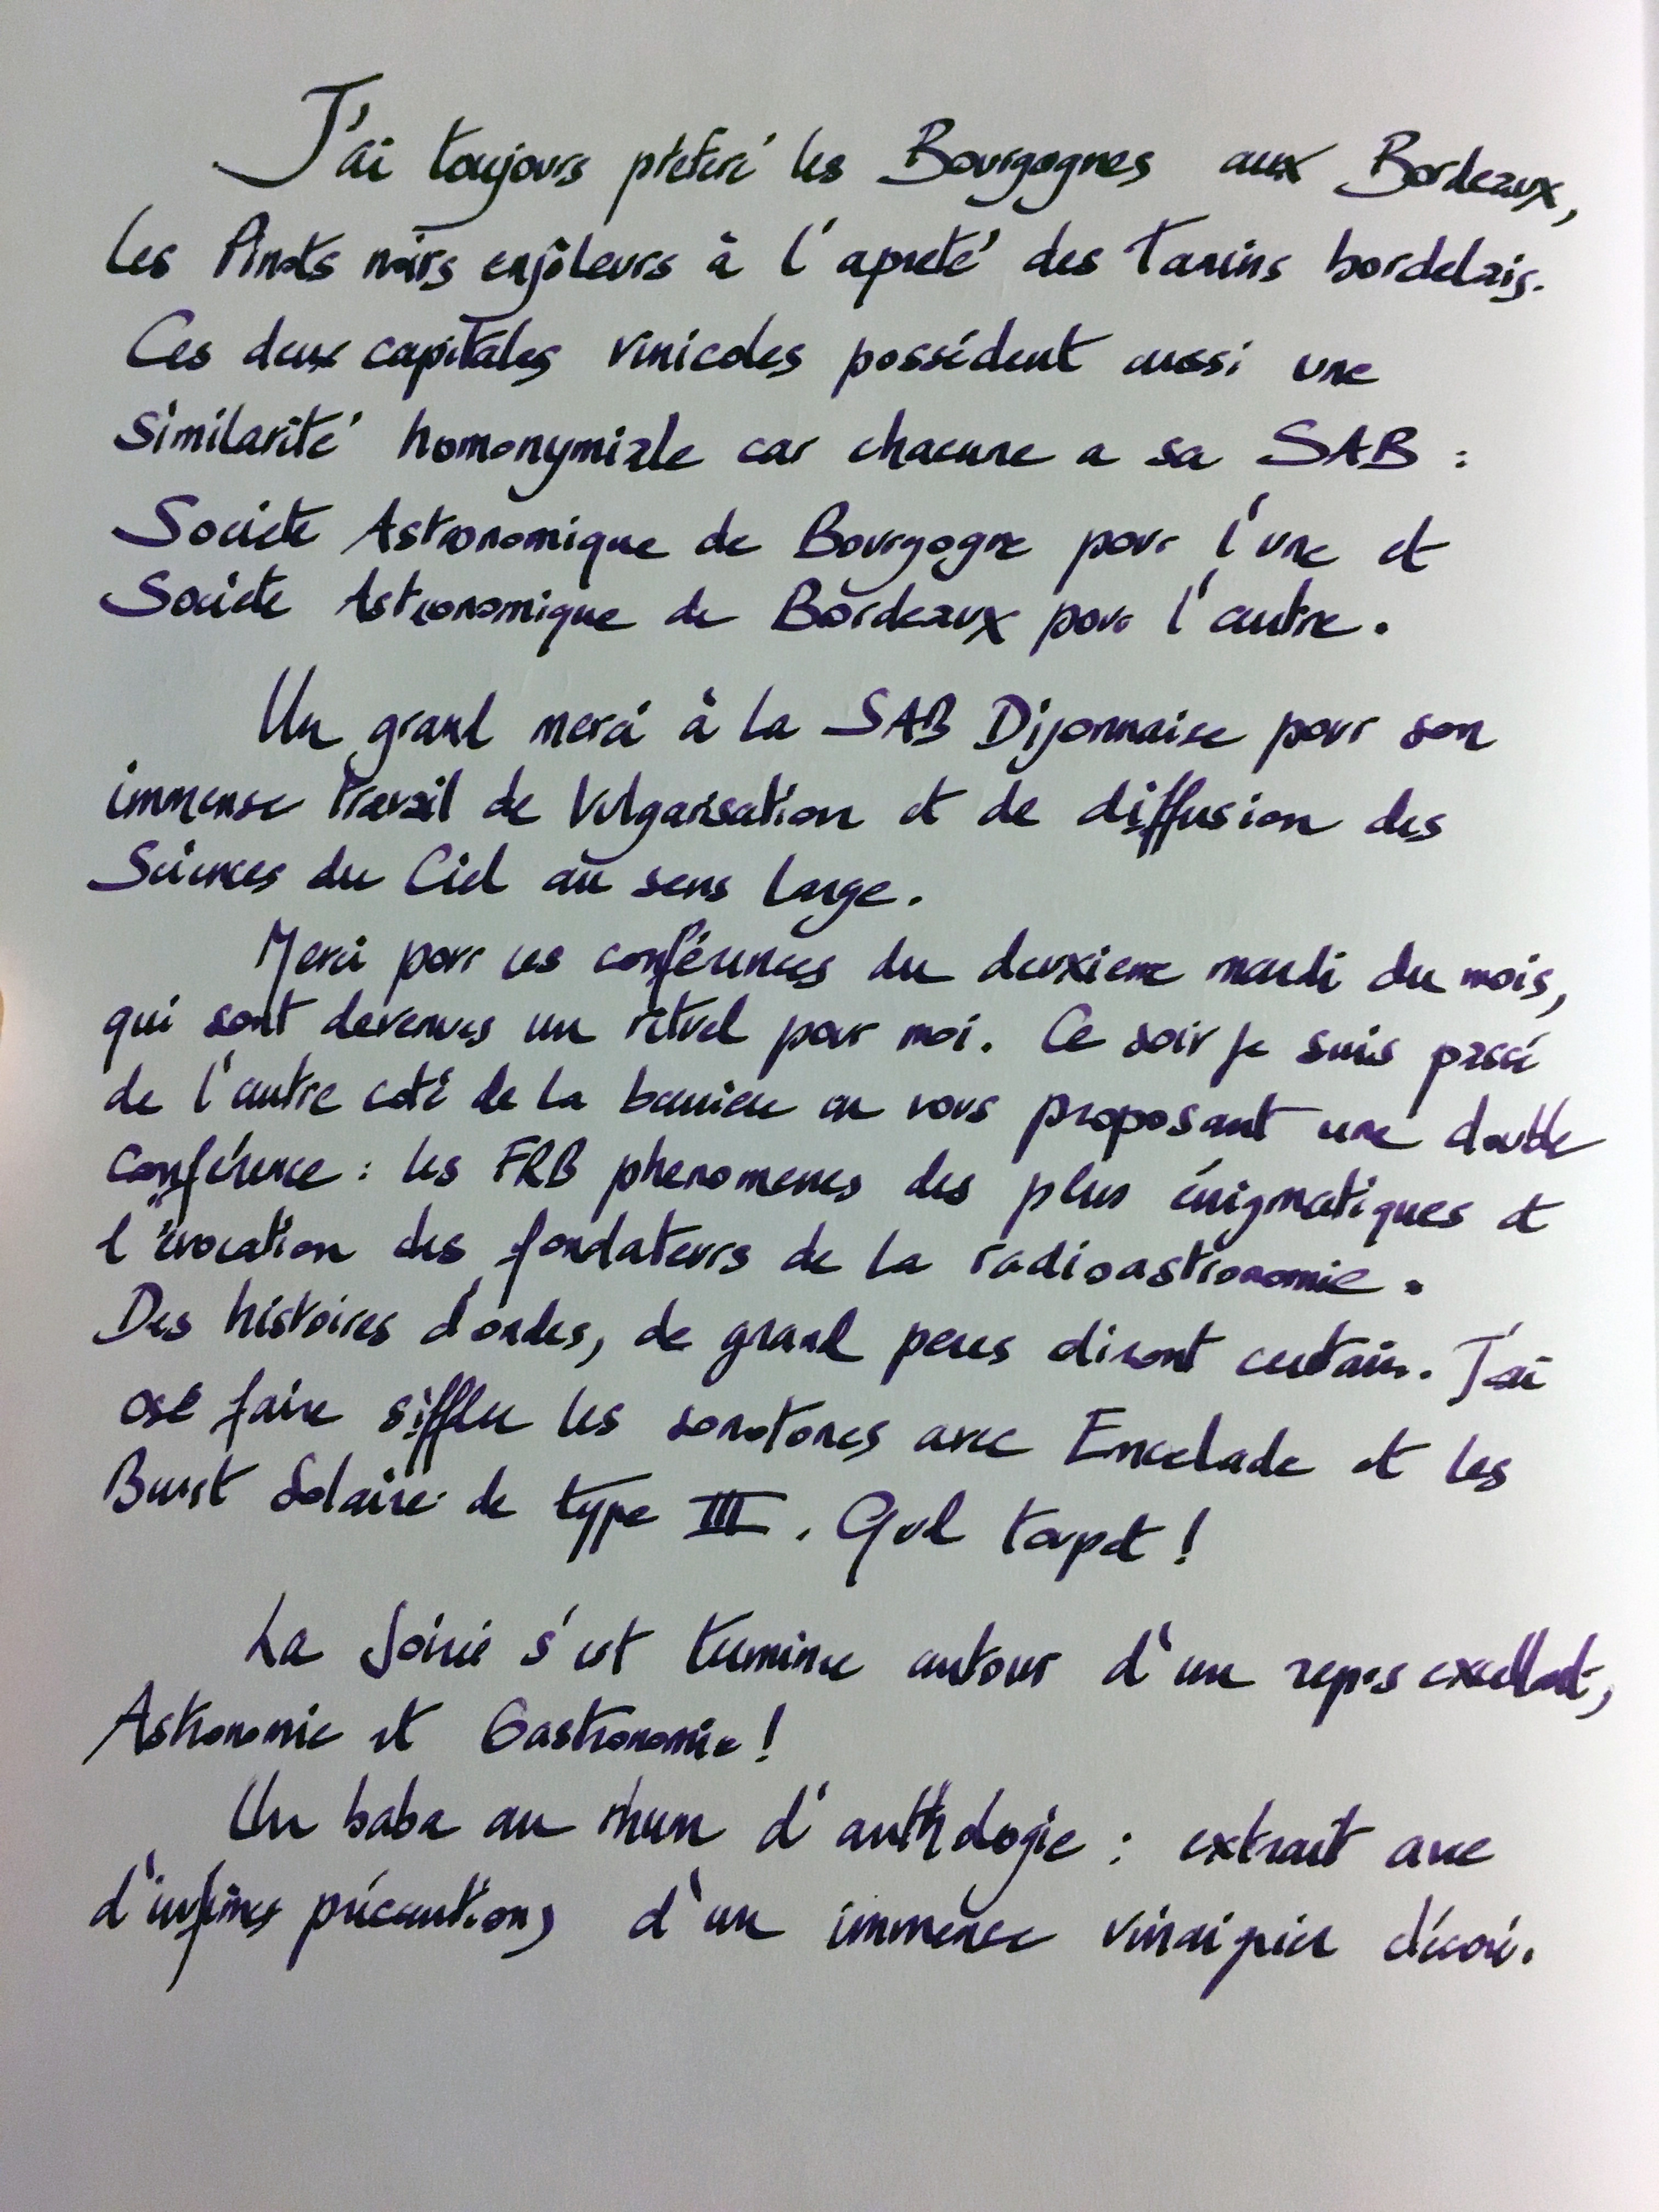 J'ai toujours préféré les Bourgognes aux Bordeaux,
les Pinots noirs enjôleurs à l'apreté des Tanins bordelais.
Ces deux capitales vinicoles possédent aussi une
Similarité homonymiale car chacune a sa SAB :
Societe Astronomique de Bourgogne pour l'une et
Societe Astronomique de Bordeaux pour l'autre.
Un grand merci à la SAB Dijonnaise pour son
immense travail de Vulgarisation et de diffusion des
Sciences du Ciel au sens large.
Merci pour ces conférences du deuxieme mardi du mois,
qui sont devenues un rituel pour moi. Ce soir je suis passé
de l'autre coté de la barriere en vous proposant une double
Conférence : les FRB phenomenes des plus énigmatiques et
l'évocation des fondateurs de la radioastronomie.
Des histoires d'ondes, de grand peres diront certain. J'ai
osé faire siffler les sonotones avec Encelade et les
Burst Solaire de type III. Quel toupet !
La soirée s'est terminee autour d'un repas excellent,
Astronomie et Gastronomie !
Un baba au rhum d'anthologie : extrait avec
d'infimes précautions d'un immense vinaigrier décoré.